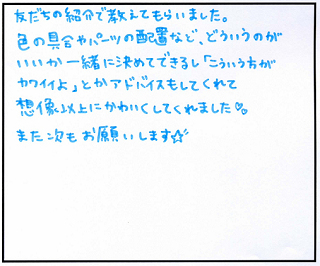 友だちの紹介で教えてもらいました。
色の具合やパーツの配置など、どういうのが
いいか一緒に決めてできるし「こういう方が
カワイイよ」とかアドバイスもしてくれて
想像以上にかわいくしてくれました♡
また次もお願いします☆